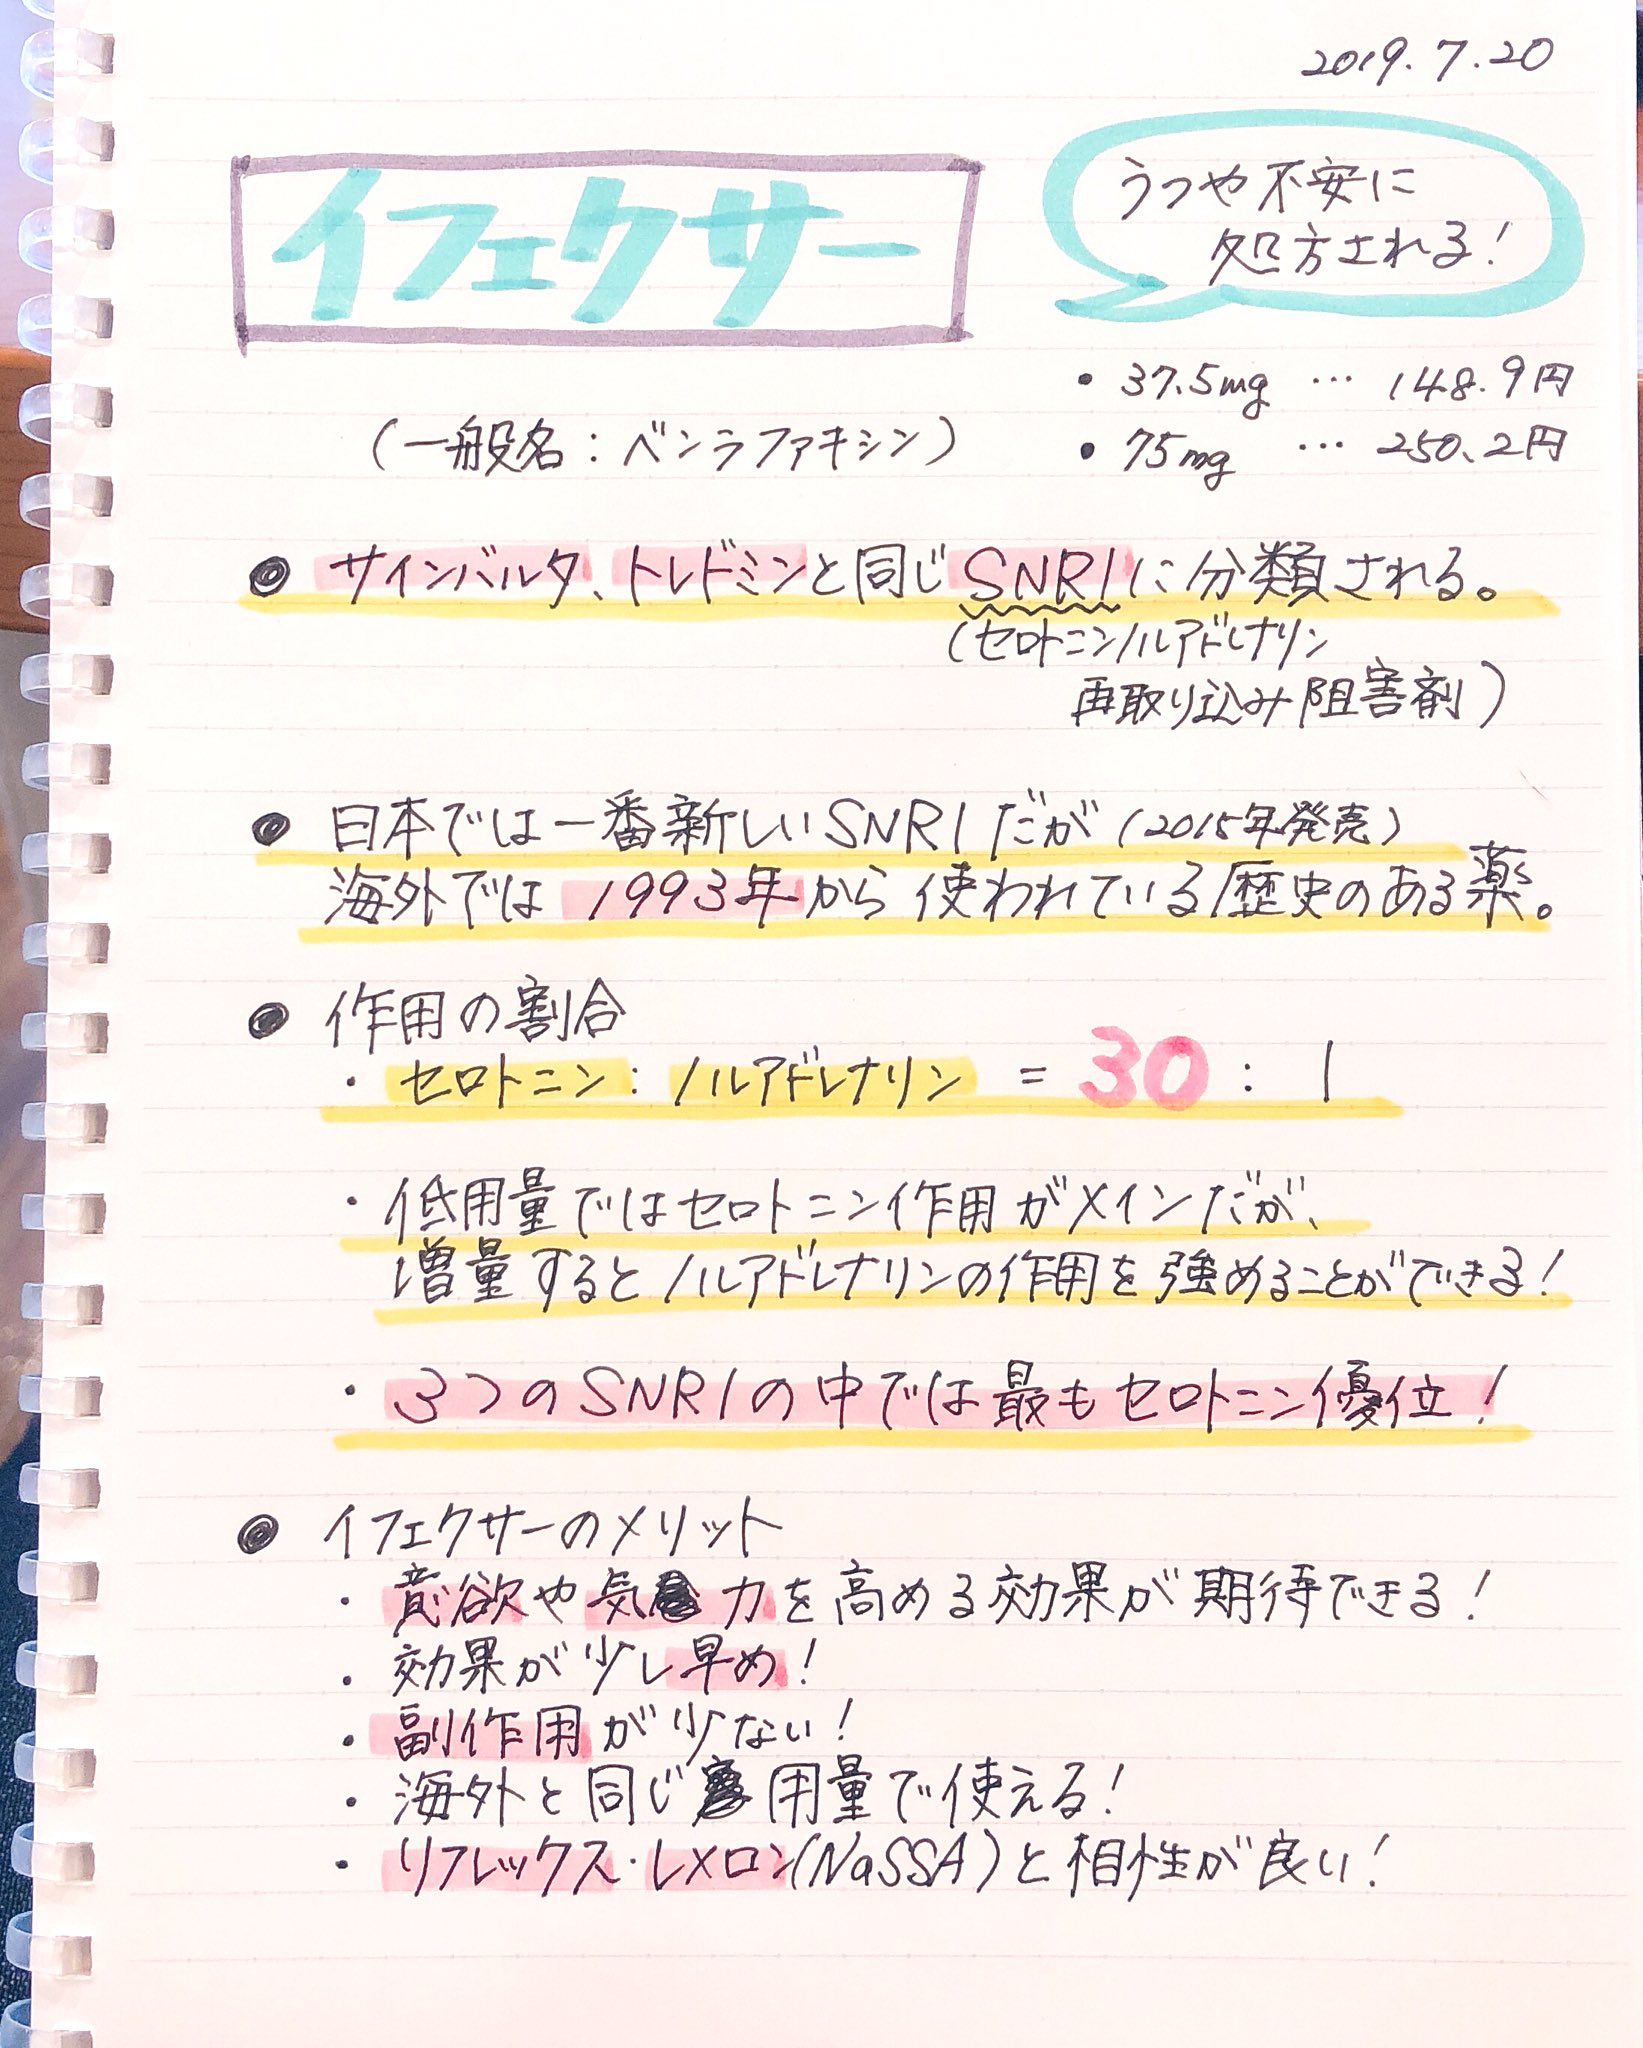 2019.7.20
イフェクサー
うつや不安に
処方される!
・37.5mg … 148.9円
(一般名:ベンラファキシン)
・75mg … 250.2円
● サインバルタ、トレドミンと同じSNRIに分類される。
(セロトニンノルアドレナリン
再取り込み阻害剤)
● 日本では一番新しいSNRIだが(2015年発売)
海外では1993年から使われている歴史のある薬。
● 作用の割合
・セロトニン:ノルアドレナリン = 30 : 1
・低用量ではセロトニン作用がメインだが、
増量するとノルアドレナリンの作用を強めることができる!
・3つのSNRIの中では最もセロトニン優位!
● イフェクサーのメリット
・意欲や気力を高める効果が期待できる!
・効果が少し早め!
・副作用が少ない!
・海外と同じ用量で使える!
・リフレックス・レメロン(NaSSA)と相性が良い!